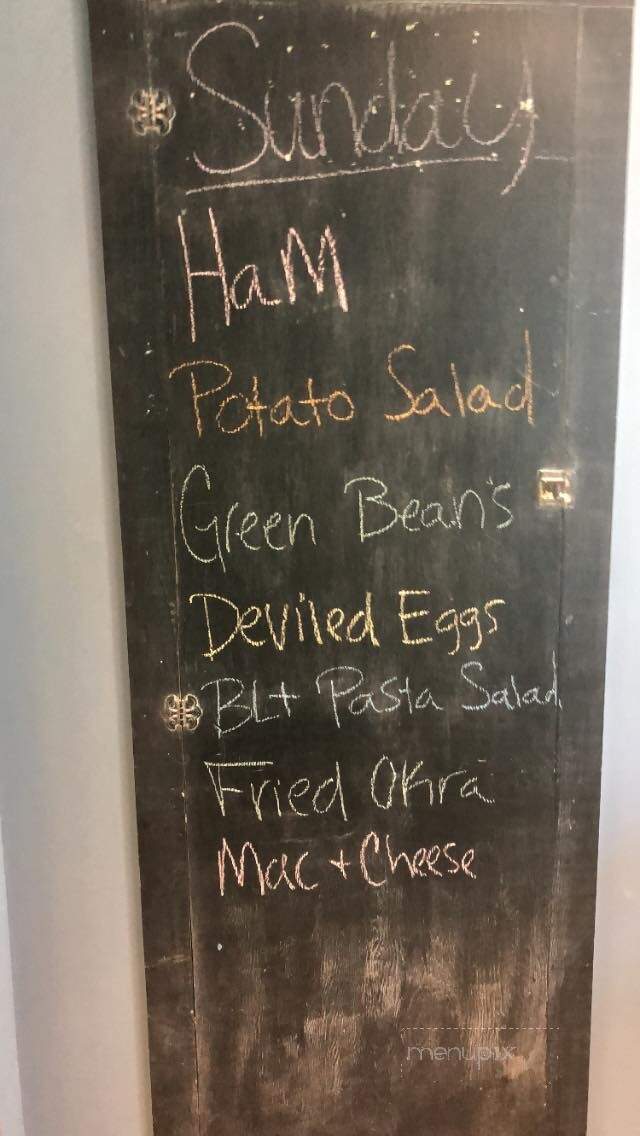 Sunday
HaM
Potato Salad
Green Bean's
Deviled Eggs
BLt Pasta Salad
Fried Okra
Mac + Cheese
menupix